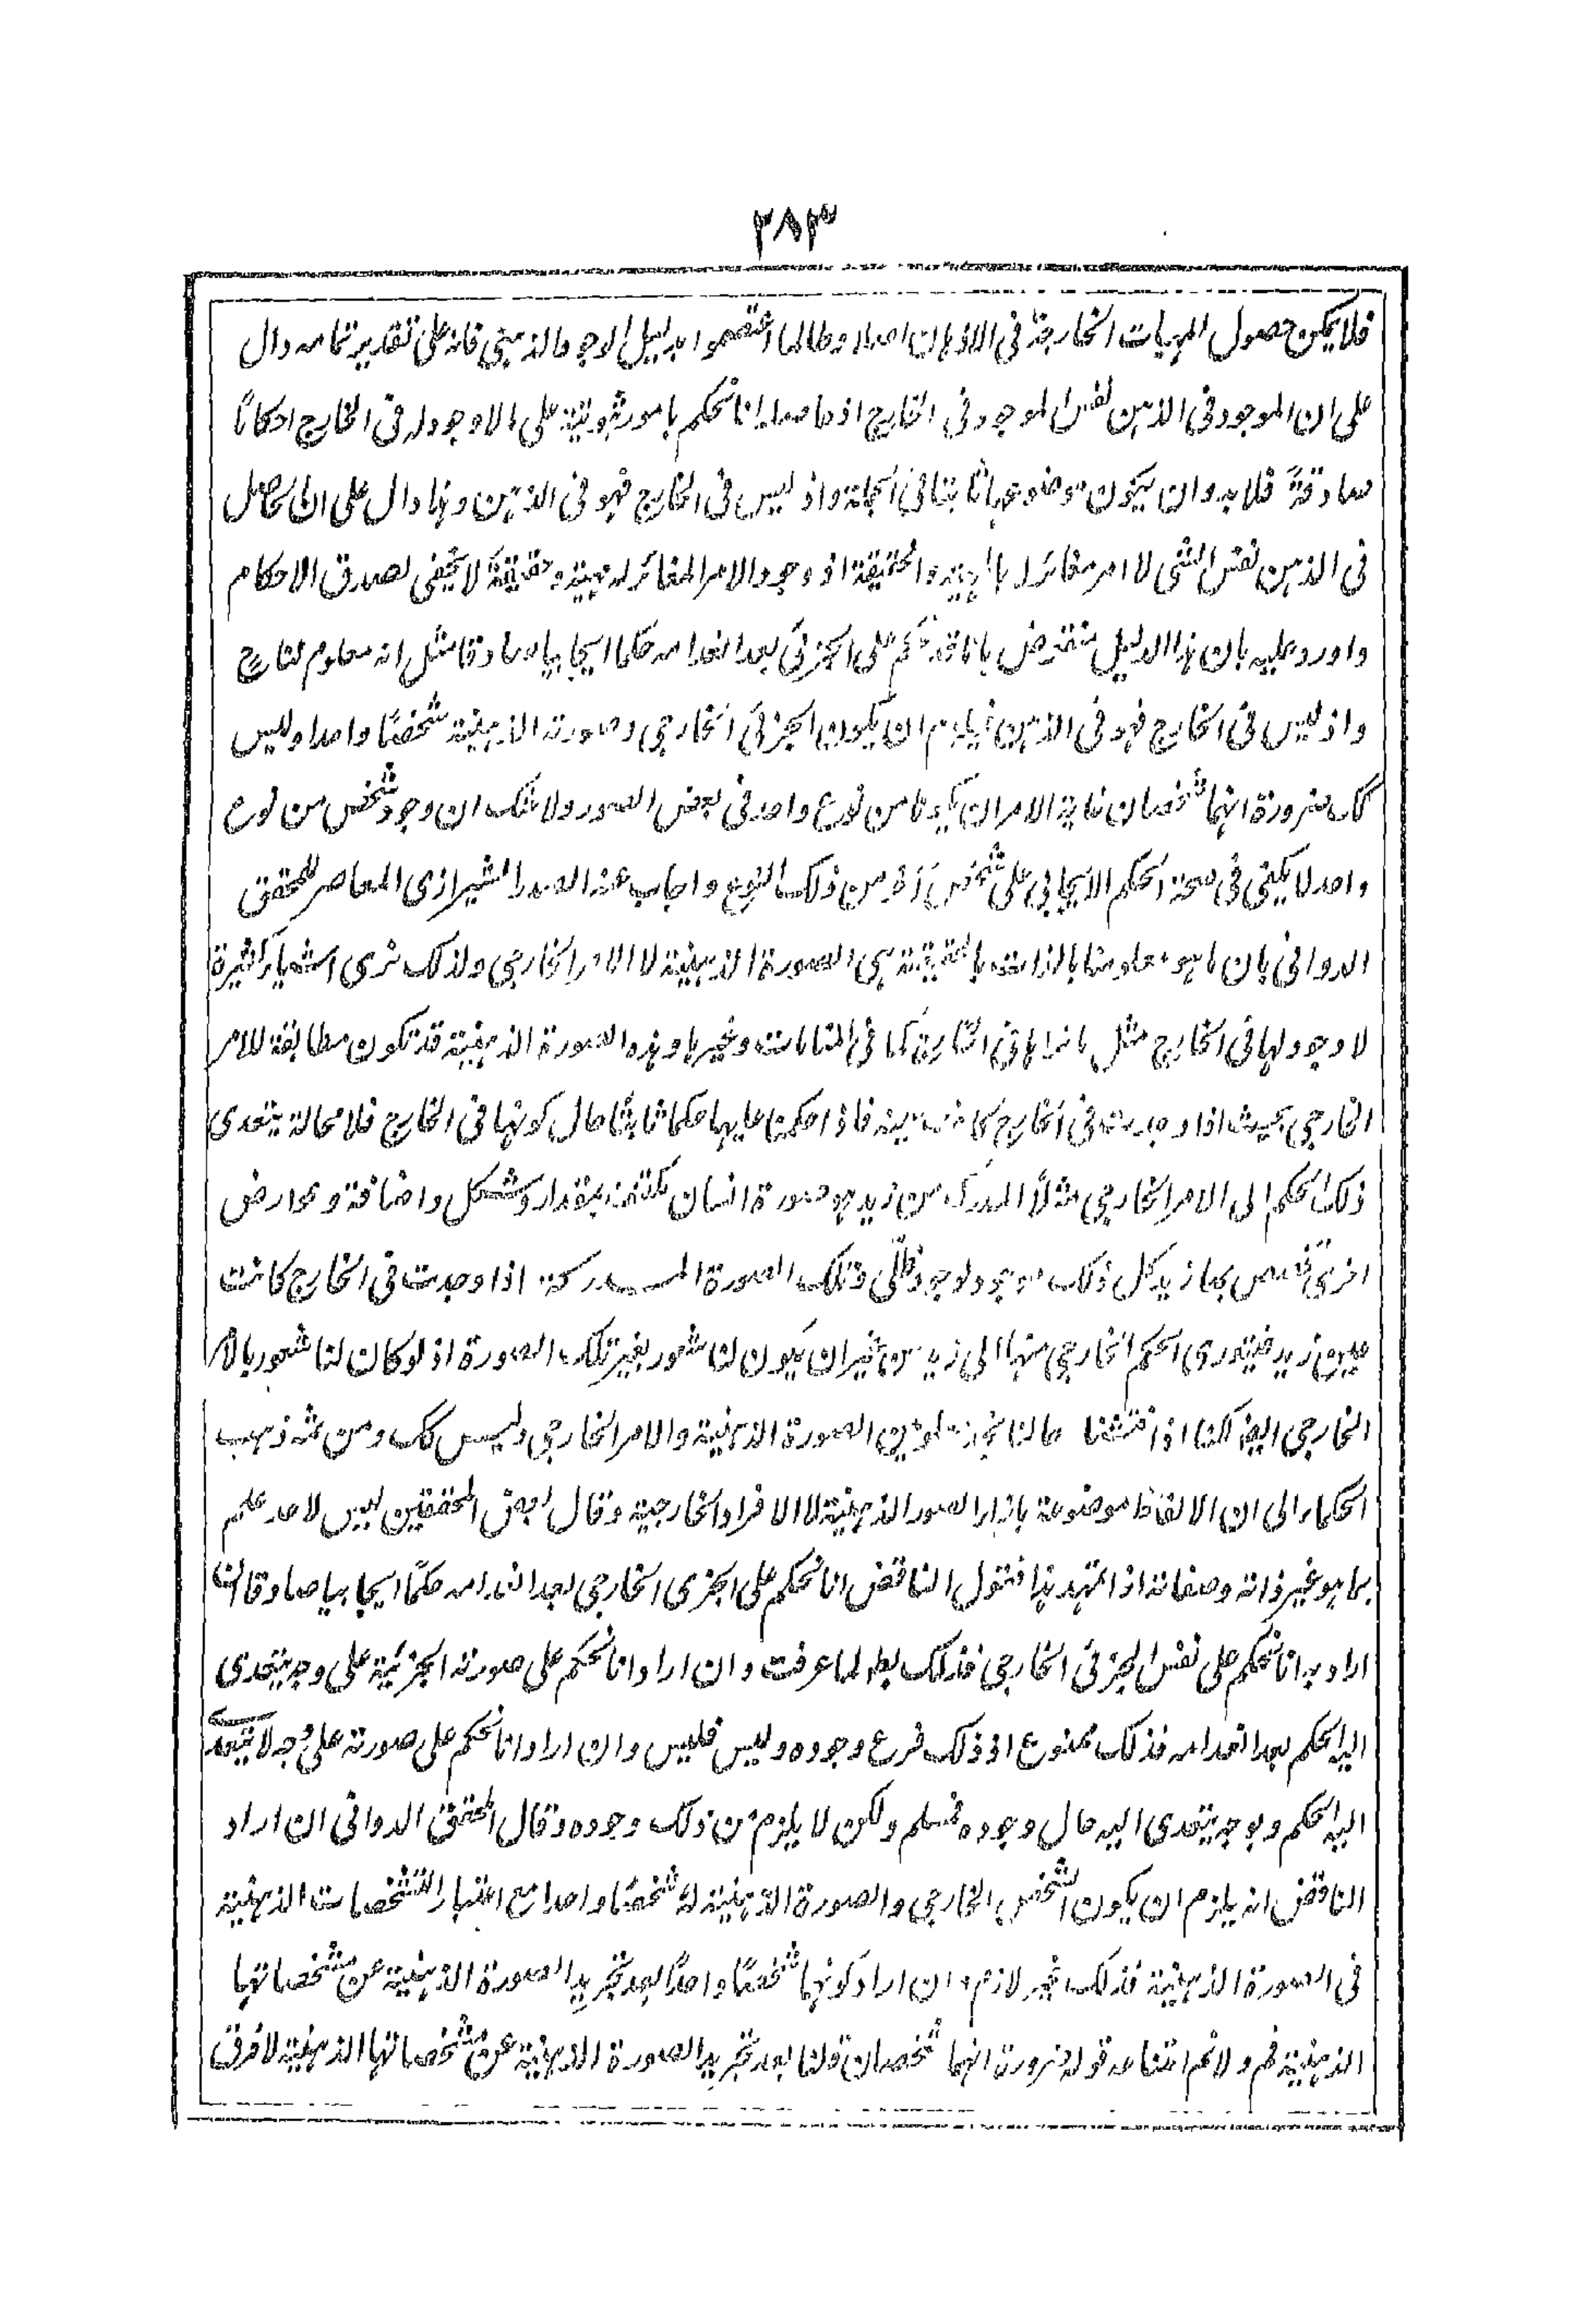 ٢٨٣
فلا يمكن حصول المهيات الخارجة في الاذهان اصلا وطالما اعتصموا بدليل الوجود الذهني فانه على تقدير تمامه دال
على ان الموجود في الذهن نفس الموجود في الخارج اذ حاصله انا نحكم بامور ثبوتية على ما لا وجود له في الخارج احكامًا
صادقةً فلا بد وان يكون موضوعها ثابتا في الجملة واذ ليس في الخارج فهو في الذهن وهذا دال على ان الحاصل
في الذهن نفس الشئ لا امر مغائر له بالمهية والحقيقة اذ وجود الامر المغائر له مهية وحقيقةً لا يكفى لصدق الاحكام
واورد عليه بان هذا الدليل منتقض بانا قد نحكم على الجزئي بعد انعدامه حكما ايجابيا صادقا مثل انه معلوم لنا رح
واذ ليس في الخارج فهو في الذهن فيلزم ان يكون الجزئي الخارجي وصورته الذهنية شخصًا واحدا وليس
كك ضرورة انهما شخصان غاية الامر ان يكونا من نوع واحد في بعض الصور ولا شك ان وجود شخص من نوع
واحد لا يكفي في صحة الحكم الايجابي على شخص آخر من ذلك النوع واجاب عنه الصدر الشيرازي المعاصر للمحقق
الدواني بان ما هو معلومنا بالذات بالحقيقة هي الصورة الذهنية لا الامر الخارجي ولذلك نرى اشياء كثيرة
لا وجود لها في الخارج مثل ما نراها في الخارج كما في المنامات وغيرها وهذه الصورة الذهنية قد تكون مطابقة للامر
الخارجي بحيث اذا وجدت في الخارج كانت عينه فاذا حكمنا عليها حكما ثابتًا حال كونها في الخارج فلا محالة يتعدى
ذلك الحكم الى الامر الخارجي مثلًا المدرك من زيد هو صورة انسان مكتنف بمقدار وشكل واضافة وعوارض
اخرى تخصص بها زيد كل ذلك موجود بوجود ظلّي وتلك الصورة المدركة اذا وجدت في الخارج كانت
عين زيد فيتعدى الحكم الخارجي منها الى زيد من غير ان يكون لنا شعور بغير تلك الصورة اذ لو كان لنا شعور بالامر
الخارجي ايضا لكنا اذا فتشنا حالنا نجد معلومين الصورة الذهنية والامر الخارجي وليس كك ومن ثمه ذهب
الحكماء الى ان الالفاظ موضوعة بازاء الصور الذهنية لا الافراد الخارجية وقال بعض المحققين ليس لاحد علم
بما هو غير ذاته وصفاته اذا تمهد هذا فنقول الناقض انا نحكم على الجزى الخارجي بعد انعدامه حكمًا ايجابيا صادقا ان
اراد به انا نحكم على نفس الجزئي الخارجي فذلك بط لما عرفت وان اراد انا نحكم على صورته الجزئية على وجه يتعدى
اليه الحكم بعد انعدامه فذلك ممنوع اذ ذلك فرع وجوده وليس فليس وان اراد انا نحكم على صورته على وجه لا يتعدى
اليه الحكم وبوجه يتعدى اليه حال وجوده فمسلم ولكن لا يلزم من ذلك وجوده وقال المحقق الدواني ان اراد
الناقض انه يلزم ان يكون الشخص الخارجي والصورة الذهنية له شخصًا واحدا مع اعتبار التشخصات الذهنية
في الصورة الذهنية فذلك غير لازم وان اراد كونهما شخصًا واحدًا بعد تجريد الصورة الذهنية عن مشخصاتها
الذهنية فم ولا نم امتناعه قوله ضرورة انهما شخصان قلنا بعد تجريد الصورة الذهنية عن مشخصاتها الذهنية لا فرق